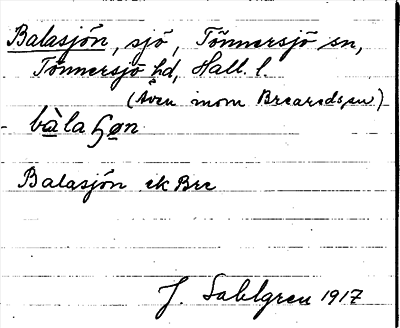 Balasjön, sjö, Tönnersjö sn,
Tönnersjö hd, Hall. l.
(Även inom Breareds sn)
bàlaɧøn
Balasjön ek Bre
J. Sahlgren 1917